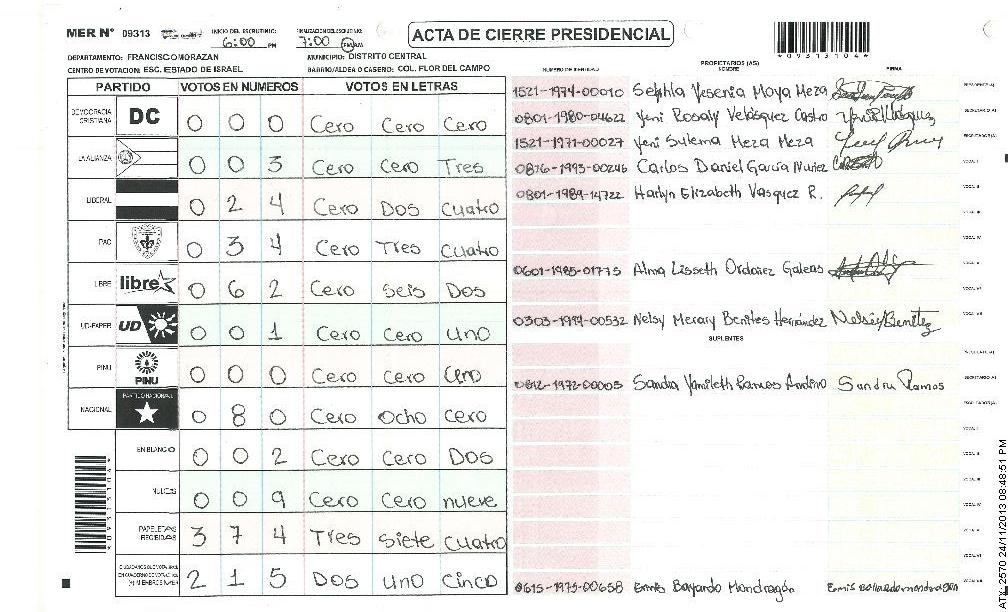 MER N° 09313
INICIO DEL ESCRUTINIO: 6:00 PM
7:00 PM AM
ACTA DE CIERRE PRESIDENCIAL
09313104
DEPARTAMENTO: FRANCISCO MORAZAN
MUNICIPIO: DISTRITO CENTRAL
CENTRO DE VOTACION: ESC. ESTADO DE ISRAEL
BARRIO/ALDEA O CASERIO: COL. FLOR DEL CAMPO
PARTIDO VOTOS EN NUMEROS VOTOS EN LETRAS
DEMOCRACIA CRISTIANA DC 0 0 0 Cero Cero Cero
LA ALIANZA 0 0 3 Cero Cero Tres
LIBERAL 0 2 4 Cero Dos Cuatro
PAC 0 3 4 Cero Tres Cuatro
LIBRE libre 0 6 2 Cero Seis Dos
UD-FAPER UD 0 0 1 Cero Cero Uno
PINU PINU 0 0 0 Cero Cero Cero
NACIONAL PARTIDO NACIONAL 0 8 0 Cero Ocho Cero
EN BLANCO 0 0 2 Cero Cero Dos
NULOS 0 0 9 Cero Cero nueve
PAPELETAS RECIBIDAS 3 7 4 Tres Siete Cuatro
2 1 5 Dos Uno Cinco
09313104
NUMERO DE IDENTIDAD
PROPIETARIOS (AS)
NOMBRE
FIRMA
1521-1974-00010 Sephla Yesenia Moya Meza
0801-1980-04622 Yeni Rosaly Velásquez Castro
1521-1971-00027 Yeni Sulema Meza Meza
0816-1993-00246 Carlos Daniel García Nuñez
0801-1989-14722 Harlyn Elizabeth Vasquez R.
0601-1985-01775 Alma Lisseth Ordoñez Galeas
0303-1994-00532 Nelsy Merary Benites Hernández Nelsy Benitez
SUPLENTES
0812-1972-00003 Sandra Yamileth Ramos Andino Sandra Ramos
0615-1975-00658 Ermis Bayardo Mondragón
ATX 2570 24/11/2013 08:48:51 PM